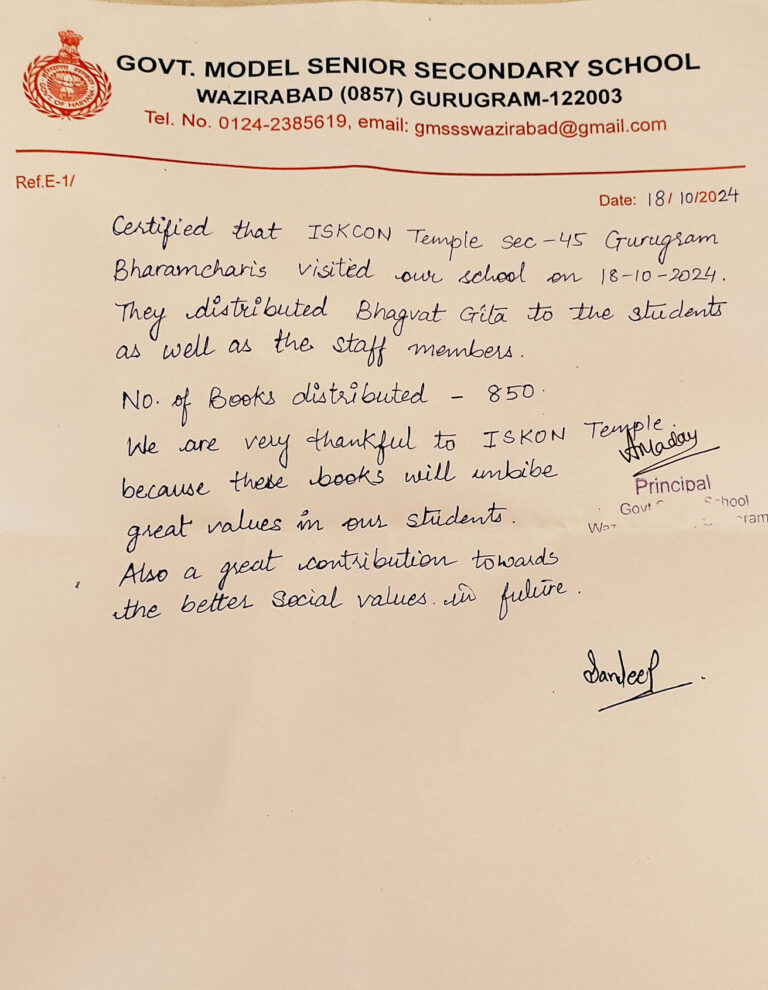 GOVT. MODEL SENIOR SECONDARY SCHOOL
WAZIRABAD (0857) GURUGRAM-122003
Tel. No. 0124-2385619, email: gmssswazirabad@gmail.com
GOVT OF HARYANA
Ref.E-1/
Date: 18/10/2024
Certified that ISKCON Temple Sec-45 Gurugram
Bharamcharis visited our school on 18-10-2024.
They distributed Bhagvat Gita to the students
as well as the staff members.
No. of Books distributed - 850.
We are very thankful to ISKON Temple.
because these books will imbibe
great values in our students.
Principal
Govt School
Also a great contribution towards
the better Social values. in future.
Sandeep